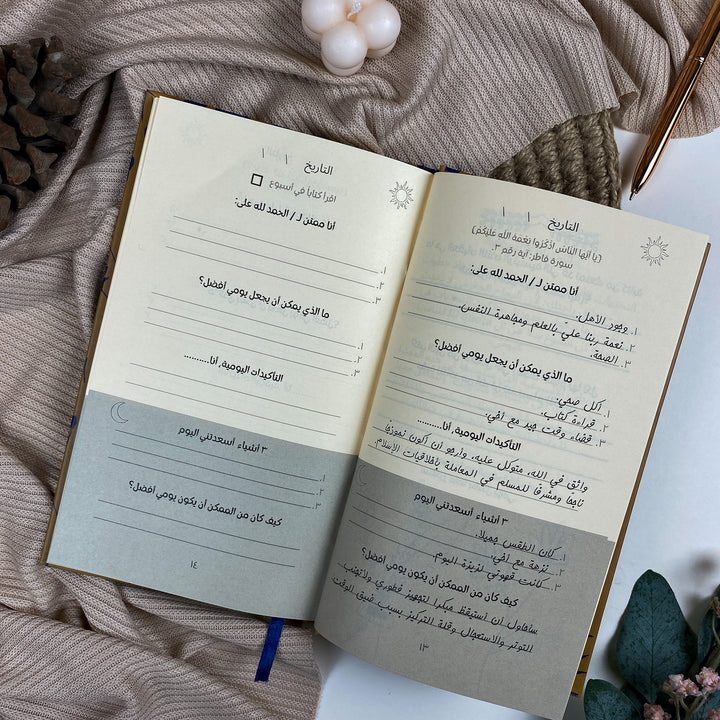 التاريخ \ \
(يا أيها الناس اذكروا نعمة الله عليكم)
سورة فاطر: آية رقم ٣.
أنا ممتن لـ / الحمد لله على:
١. وجود الأهل.
٢. نعمة ربنا عليّ بالعلم ومجاهدة النفس.
٣. الصحة.
ما الذي يمكن أن يجعل يومي أفضل؟
١. أكل صحي.
٢. قراءة كتاب.
٣. قضاء وقت جيد مع أخي.
التأكيدات اليومية, أنا..........
واثق في الله، متوكل عليه، وأرجو أن أكون نموذجًا
ناجحًا ومشرفًا للمسلم في المعاملة بأخلاقيات الإسلام.
٣ أشياء أسعدتني اليوم
١. كان الطقس جميلا.
٢. نزهة مع أخي.
٣. كانت قهوتي لذيذة اليوم.
كيف كان من الممكن أن يكون يومي أفضل؟
سأحاول أن أستيقظ مبكرا لتجهيز فطوري ولأتجنب
التوتر والاستعجال وقلة التركيز بسبب ضيق الوقت
١٣
التاريخ \ \
اقرأ كتاباً في أسبوع
أنا ممتن لـ / الحمد لله على:
١.
٢.
٣.
ما الذي يمكن أن يجعل يومي أفضل؟
١.
٢.
٣.
التأكيدات اليومية, أنا..........
٣ أشياء أسعدتني اليوم
١.
٢.
٣.
كيف كان من الممكن أن يكون يومي أفضل؟
١٤